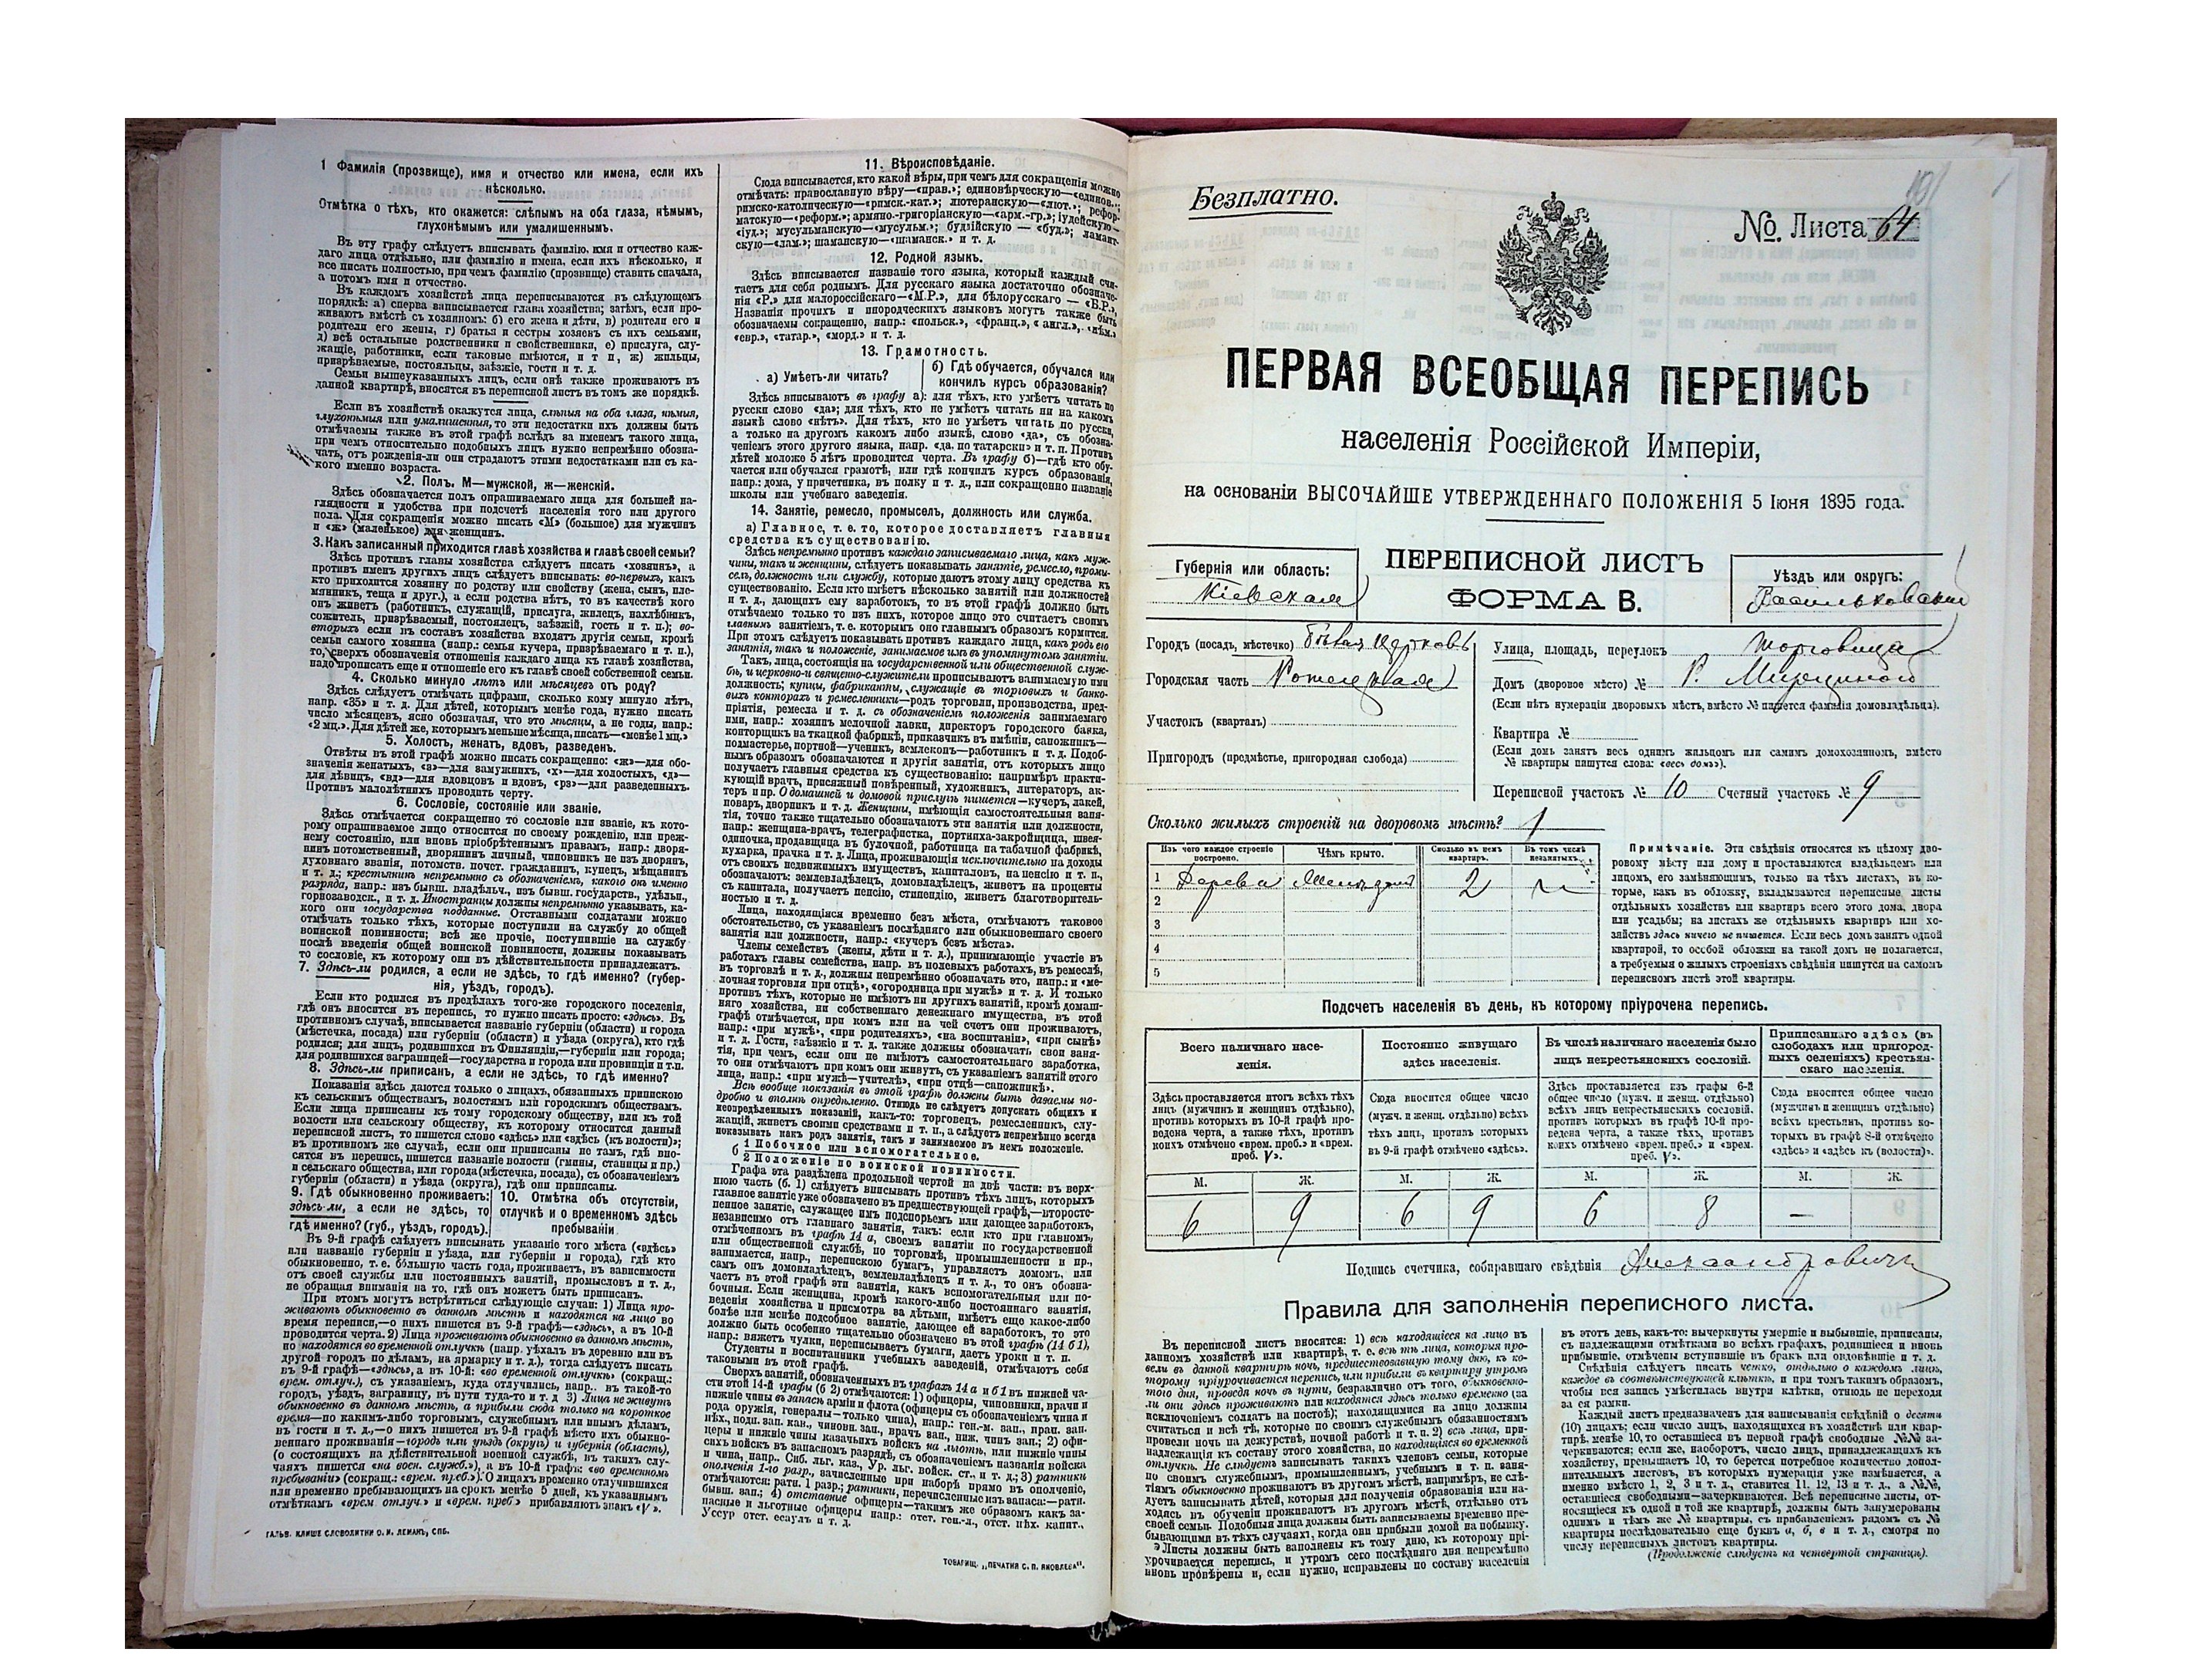 1 Фамилія (прозвище), имя и отчество или имена, если ихъ
нѣсколько.
Отмѣтка о тѣхъ, кто окажется: слѣпымъ на оба глаза, нѣмымъ,
глухонѣмымъ или умалишеннымъ.
Въ эту графу слѣдуетъ вписывать фамилію, имя и отчество каж-
даго лица отдѣльно, или фамилію и имена, если ихъ нѣсколько, и
все писать полностью, при чемъ фамилію (прозвище) ставить сначала,
а потомъ имя и отчество.
Въ каждомъ хозяйствѣ лица переписываются въ слѣдующемъ
порядкѣ: а) сперва вписывается глава хозяйства; затѣмъ, если про-
живаютъ вмѣстѣ съ хозяиномъ: б) его жена и дѣти, в) родители его и
родители его жены, г) братья и сестры хозяевъ съ ихъ семьями,
д) всѣ остальные родственники и свойственники, е) прислуга, слу-
жащіе, работники, если таковые имѣются, и т п, ж) жильцы,
призрѣваемые, постояльцы, заѣзжіе, гости и т. д.
Семьи вышеуказанныхъ лицъ, если онѣ также проживаютъ въ
данной квартирѣ, вносятся въ переписной листъ въ томъ же порядкѣ.
Если въ хозяйствѣ окажутся лица, слѣпыя на оба глаза, нѣмыя,
глухонѣмыя или умалишенныя, то эти недостатки ихъ должны быть
отмѣчаемы также въ этой графѣ вслѣдъ за именемъ такого лица,
при чемъ относительно подобныхъ лицъ нужно непремѣнно обозна-
чать, отъ рожденія-ли они страдаютъ этими недостатками или съ ка-
кого именно возраста.
2. Полъ. М—мужской, ж—женскій.
Здѣсь обозначается полъ опрашиваемаго лица для большей на-
глядности и удобства при подсчетѣ населенія того или другого
пола. Для сокращенія можно писать «М» (большое) для мужчинъ
и «ж» (маленькое) для женщинъ.
3. Какъ записанный приходится главѣ хозяйства и главѣ своей семьи?
Здѣсь противъ главы хозяйства слѣдуетъ писать «хозяинъ», а
противъ именъ другихъ лицъ слѣдуетъ вписывать: во-первыхъ, какъ
кто приходится хозяину по родству или свойству (жена, сынъ, пле-
мянникъ, теща и друг.), а если родства нѣтъ, то въ качествѣ кого
онъ живетъ (работникъ, служащій, прислуга, жилецъ, нахлѣбникъ,
сожитель, призрѣваемый, постоялецъ, заѣзжій, гость и т. п.); во-
вторыхъ если въ составъ хозяйства входятъ другія семьи, кромѣ
семьи самого хозяина (напр.: семья кучера, призрѣваемаго и т. п.),
то, сверхъ обозначенія отношенія каждаго лица къ главѣ хозяйства,
надо прописать еще и отношеніе его къ главѣ своей собственной семьи.
4. Сколько минуло лѣтъ или мѣсяцевъ отъ роду?
Здѣсь слѣдуетъ отмѣчать цифрами, сколько кому минуло лѣтъ,
напр. «35» и т. д. Для дѣтей, которымъ менѣе года, нужно писать
число мѣсяцевъ, ясно обозначая, что это мѣсяцы, а не годы, напр.:
«2 мц.». Для дѣтей же, которымъ меньше мѣсяца, писать—«менѣе 1 мц.»
5. Холостъ, женатъ, вдовъ, разведенъ.
Отвѣты въ этой графѣ можно писать сокращенно: «ж»—для обо-
значенія женатыхъ, «з»—для замужнихъ, «х»—для холостыхъ, «д»—
для дѣвицъ, «вд»—для вдовцовъ и вдовъ, «рз»—для разведенныхъ.
Противъ малолѣтнихъ проводить черту.
6. Сословіе, состояніе или званіе.
Здѣсь отмѣчается сокращенно то сословіе или званіе, къ кото-
рому опрашиваемое лицо относится по своему рожденію, или преж-
нему состоянію, или вновь пріобрѣтеннымъ правамъ, напр.: дворя-
нинъ потомственный, дворянинъ личный, чиновникъ не изъ дворянъ,
духовнаго званія, потомств. почет. гражданинъ, купецъ, мѣщанинъ
и т. д.; крестьянинъ непремѣнно съ обозначеніемъ, какого онъ именно
разряда, напр.: изъ бывш. владѣльч., изъ бывш. государств., удѣльн.,
горнозаводск., и т. д. Иностранцы должны непремѣнно указывать, ка-
кого они государства подданные. Отставными солдатами можно
отмѣчать только тѣхъ, которые поступили на службу до общей
воинской повинности; всѣ же прочіе, поступившіе на службу
послѣ введенія общей воинской повинности, должны показывать
то сословіе, къ которому они въ дѣйствительности принадлежатъ.
7. Здѣсь-ли родился, а если не здѣсь, то гдѣ именно? (губер-
нія, уѣздъ, городъ).
Если кто родился въ предѣлахъ того-же городского поселенія,
гдѣ онъ вносится въ перепись, то нужно писать просто: «здѣсь». Въ
противномъ случаѣ, вписывается названіе губерніи (области) и города
(мѣстечка, посада) или губерніи (области) и уѣзда (округа), кто гдѣ
родился; для лицъ, родившихся въ Финляндіи,—губерніи или города;
для родившихся заграницей—государства и города или провинціи и т.п.
8. Здѣсь-ли приписанъ, а если не здѣсь, то гдѣ именно?
Показанія здѣсь даются только о лицахъ, обязанныхъ припискою
къ сельскимъ обществамъ, волостямъ или городскимъ обществамъ.
Если лица приписаны къ тому городскому обществу, или къ той
волости или сельскому обществу, къ которому относится данный
переписной листъ, то пишется слово «здѣсь» или «здѣсь (къ волости)»;
въ противномъ же случаѣ, если они приписаны не тамъ, гдѣ вно-
сятся въ перепись, пишется названіе волости (гмины, станицы и пр.)
и сельскаго общества, или города (мѣстечка, посада), съ обозначеніемъ
губерніи (области) и уѣзда (округа), гдѣ они приписаны.
9. Гдѣ обыкновенно проживаетъ:
здѣсь-ли, а если не здѣсь, то
гдѣ именно? (губ., уѣздъ, городъ).
10. Отмѣтка объ отсутствіи,
отлучкѣ и о временномъ здѣсь
пребываніи
Въ 9-й графѣ слѣдуетъ вписывать указаніе того мѣста («здѣсь»
или названіе губерніи и уѣзда, или губерніи и города), гдѣ кто
обыкновенно, т. е. бо́льшую часть года, проживаетъ, въ зависимости
отъ своей службы или постоянныхъ занятій, промысловъ и т. д.,
не обращая вниманія на то, гдѣ онъ можетъ быть приписанъ.
При этомъ могутъ встрѣтиться слѣдующіе случаи: 1) Лица про-
живаютъ обыкновенно въ данномъ мѣстѣ и находятся на лицо во
время переписи,—о нихъ пишется въ 9-й графѣ—«здѣсь», а въ 10-й
проводится черта. 2) Лица проживаютъ обыкновенно въ данномъ мѣстѣ,
но находятся во временной отлучкѣ (напр. уѣхалъ въ деревню или въ
другой городъ по дѣламъ, на ярмарку и т. д.), тогда слѣдуетъ писать
въ 9-й графѣ—«здѣсь», а въ 10-й: «во временной отлучкѣ» (сокращ.:
врем. отлуч.), съ указаніемъ, куда отлучились, напр.. въ такой-то
городъ, уѣздъ, заграницу, въ пути туда-то и т. д 3) Лица не живутъ
обыкновенно въ данномъ мѣстѣ, а прибыли сюда только на короткое
время—по какимъ-либо торговымъ, служебнымъ или инымъ дѣламъ,
въ гости и т. д.,—о нихъ пишется въ 9-й графѣ мѣсто ихъ обыкно-
веннаго проживанія—городъ или уѣздъ (округъ) и губернія (область),
(о состоящихъ на дѣйствительной военной службѣ, въ такихъ слу-
чаяхъ пишется «на воен. служб.»), а въ 10-й графѣ: «во временномъ
пребываніи» (сокращ.: «врем. преб.»). О лицахъ временно отлучившихся
или временно пребывающихъ на срокъ менѣе 5 дней, къ указаннымъ
отмѣткамъ «врем. отлуч.» и «врем. преб» прибавляютъ знакъ «V».
ГАЛЬВ. КЛИШЕ СЛОВОЛИТНИ О. И. ЛЕМАНЪ, СПБ.
11. Вѣроисповѣданіе.
Сюда вписывается, кто какой вѣры, при чемъ для сокращенія можно
отмѣчать: православную вѣру—«прав.»; единовѣрческую—«единов.»;
римско-католическую—«римск.-кат.»; лютеранскую—«лют.»; рефор-
матскую—«реформ.»; армяно-григоріанскую—«арм.-гр.»; іудейскую—
«іуд.»; мусульманскую—«мусульм.»; буддійскую — «буд.»; ламаит-
скую—«лам.»; шаманскую—«шаманск.» и т. д.
12. Родной языкъ.
Здѣсь вписывается названіе того языка, который каждый счи-
таетъ для себя роднымъ. Для русскаго языка достаточно обозначе-
нія «Р.» для малороссійскаго—«М.Р.», для бѣлорусскаго — «Б.Р.»,
Названія прочихъ и инородческихъ языковъ могутъ также быть
обозначаемы сокращенно, напр.: «польск.», «франц.», «англ.», «нѣм.»
«евр.», «татар.», «морд.» и т. д.
13. Грамотность.
а) Умѣетъ-ли читать?
б) Гдѣ обучается, обучался или
кончилъ курсъ образованія?
Здѣсь вписываютъ въ графу а): для тѣхъ, кто умѣетъ читать по
русски слово «да»; для тѣхъ, кто не умѣетъ читать ни на какомъ
языкѣ слово «нѣтъ». Для тѣхъ, кто не умѣетъ читать по русски,
а только на другомъ какомъ либо языкѣ, слово «да», съ обозна-
ченіемъ этого другого языка, напр. «да. по татарски» и т. п. Противъ
дѣтей моложе 5 лѣтъ проводится черта. Въ графу б)—гдѣ кто обу-
чается или обучался грамотѣ, или гдѣ кончилъ курсъ образованія,
напр.: дома, у причетника, въ полку и т. д., или сокращенно названіе
школы или учебнаго заведенія.
14. Занятіе, ремесло, промыселъ, должность или служба.
а) Главное, т. е. то, которое доставляетъ главныя
средства къ существованію.
Здѣсь непремѣнно противъ каждаго записываемаго лица, какъ муж-
чины, такъ и женщины, слѣдуетъ показывать занятіе, ремесло, промы-
селъ, должность или службу, которые даютъ этому лицу средства къ
существованію. Если кто имѣетъ нѣсколько занятій или должностей
и т. д., дающихъ ему заработокъ, то въ этой графѣ должно быть
отмѣчаемо только то изъ нихъ, которое лицо это считаетъ своимъ
главнымъ занятіемъ, т. е. которымъ оно главнымъ образомъ кормится.
При этомъ слѣдуетъ показывать противъ каждаго лица, какъ родъ его
занятія, такъ и положеніе, занимаемое имъ въ упомянутомъ занятіи.
Такъ, лица, состоящія на государственной или общественной служ-
бѣ, и церковно-и священно-служители прописываютъ занимаемую ими
должность; купцы, фабриканты, служащіе въ торговыхъ и банко-
выхъ конторахъ и ремесленники—родъ торговли, производства, пред-
пріятія, ремесла и т. д. съ обозначеніемъ положенія занимаемаго
ими, напр.: хозяинъ мелочной лавки, директоръ городского банка,
конторщикъ на ткацкой фабрикѣ, приказчикъ въ имѣніи, сапожникъ—
подмастерье, портной—ученикъ, землекопъ—работникъ и т. д. Подоб-
нымъ образомъ обозначаются и другія занятія, отъ которыхъ лицо
получаетъ главныя средства къ существованію: напримѣръ практи-
кующій врачъ, присяжный повѣренный, художникъ, литераторъ, ак-
теръ и пр. О домашней и домовой прислугѣ пишется—кучеръ, лакей,
поваръ, дворникъ и т. д. Женщины, имѣющія самостоятельныя заня-
тія, точно также тщательно обозначаютъ эти занятія или должности,
напр.: женщина-врачъ, телеграфистка, портниха-закройщица, швея-
одиночка, продавщица въ булочной, работница на табачной фабрикѣ,
кухарка, прачка и т. д. Лица, проживающія исключительно на доходы
отъ своихъ недвижимыхъ имуществъ, капиталовъ, на пенсію и т. п.,
обозначаютъ: землевладѣлецъ, домовладѣлецъ, живетъ на проценты
съ капитала, получаетъ пенсію, стипендію, живетъ благотворитель-
ностью и т. д.
Лица, находящіяся временно безъ мѣста, отмѣчаютъ таковое
обстоятельство, съ указаніемъ послѣдняго или обыкновеннаго своего
занятія или должности, напр.: «кучеръ безъ мѣста».
Члены семействъ (жены, дѣти и т. д.), принимающіе участіе въ
работахъ главы семейства, напр. въ полевыхъ работахъ, въ ремеслѣ,
въ торговлѣ и т. д., должны непремѣнно обозначать это, напр.: и «ме-
лочная торговля при отцѣ», «огородница при мужѣ» и т. д. И только
противъ тѣхъ, которые не имѣютъ ни другихъ занятій, кромѣ домаш-
няго хозяйства, ни собственнаго денежнаго имущества, въ этой
графѣ отмѣчается, при комъ или на чей счетъ они проживаютъ,
напр.: «при мужѣ», «при родителяхъ», «на воспитаніи», «при сынѣ»
и т. д. Гости, заѣзжіе и т. д. также должны обозначать свои заня-
тія, при чемъ, если они не имѣютъ самостоятельнаго заработка,
то они отмѣчаютъ при комъ они живутъ, съ указаніемъ занятій этого
лица, напр.: «при мужѣ—учителѣ», «при отцѣ—сапожникѣ».
Всѣ вообще показанія въ этой графѣ должны быть даваемы по-
дробно и вполнѣ опредѣленно. Отнюдь не слѣдуетъ допускать общихъ и
неопредѣленныхъ показаній, какъ-то: торговецъ, ремесленникъ, слу-
жащій, живетъ своими средствами и т. п., а слѣдуетъ непремѣнно всегда
показывать какъ родъ занятія, такъ и занимаемое въ немъ положеніе.
б 1 Побочное или вспомогательное.
2 Положеніе по воинской повинности.
Графа эта раздѣлена продольной чертой на двѣ части: въ верх-
нюю часть (б. 1) слѣдуетъ вписывать противъ тѣхъ лицъ, которыхъ
главное занятіе уже обозначено въ предшествующей графѣ,—второсте-
пенное занятіе, служащее имъ подспорьемъ или дающее заработокъ,
независимо отъ главнаго занятія, такъ: если кто при главномъ,
отмѣченномъ въ графѣ 14 а, своемъ занятіи по государственной
или общественной службѣ, по торговлѣ, промышленности и пр.,
занимается, напр., перепискою бумагъ, управляетъ домомъ, или
самъ онъ домовладѣлецъ, землевладѣлецъ и т. д., то онъ обозна-
часть въ этой графѣ эти занятія, какъ вспомогательныя или по-
бочныя. Если женщина, кромѣ какого-либо постояннаго занятія,
веденія хозяйства и присмотра за дѣтьми, имѣетъ еще какое-либо
болѣе или менѣе подсобное занятіе, дающее ей заработокъ, то это
должно быть особенно тщательно обозначено въ этой графѣ (14 б 1),
напр.: вяжетъ чулки, переписываетъ бумаги, даетъ уроки и т. п.
Студенты и воспитанники учебныхъ заведеній, отмѣчаютъ себя
таковыми въ этой графѣ.
Сверхъ занятій, обозначенныхъ въ графахъ 14 а и б 1 въ нижней ча-
сти этой 14-й графы (б 2) отмѣчаются: 1) офицеры, чиновники, врачи и
нижніе чины въ запасѣ арміи и флота (офицеры съ обозначеніемъ чина и
рода оружія, генералы—только чина), напр.: ген.-м. зап., прап. зап.
пѣх., подп. зап. кав., чиновн. зап., врачъ зап., ниж. чинъ зап.; 2) офи-
церы и нижніе чины казачьихъ войскъ на льготѣ, или нижніе чины
сихъ войскъ въ запасномъ разрядѣ, съ обозначеніемъ названія войска
и чина, напр.. Сиб. льг. каз., Ур. льг. войск. ст., и т. д.; 3) ратники
ополченія 1-го разр., зачисленные при наборѣ прямо въ ополченіе,
отмѣчаются: ратн. 1 разр.; ратники, перечисленные изъ запаса:—ратн.
бывш. зап.; 4) отставные офицеры—такимъ же образомъ какъ за-
пасные и льготные офицеры напр.: отст. ген.-л., отст. пѣх. капит.,
Уссур отст. есаулъ и т. д.
ТОВАРИЩ. „ПЕЧАТНЯ С. П. ЯКОВЛЕВА".
Безплатно.
№ Листа 64
ПЕРВАЯ ВСЕОБЩАЯ ПЕРЕПИСЬ
населенія Россійской Имперіи,
на основаніи ВЫСОЧАЙШЕ УТВЕРЖДЕННАГО ПОЛОЖЕНІЯ 5 Іюня 1895 года.
Губернія или область:
Кіевская
ПЕРЕПИСНОЙ ЛИСТЪ
ФОРМА В.
Уѣздъ или округъ:
Васильковскій
Городъ (посадъ, мѣстечко) Бѣлая Церковь
Городская часть
Участокъ (кварталъ)
Пригородъ (предмѣстье, пригородная слобода)
Улица, площадь, переулокъ Торговица
Домъ (дворовое мѣсто) №
(Если нѣтъ нумераціи дворовыхъ мѣстъ, вмѣсто № пишется фамилія домовладѣльца).
Квартира №
(Если домъ занятъ весь однимъ жильцомъ или самимъ домохозяиномъ, вмѣсто
№ квартиры пишутся слова: «весь домъ»).
Переписной участокъ № 10 Счетный участокъ № 9
Сколько жилыхъ строеній на дворовомъ мѣстѣ? 1
Изъ чего каждое строеніе
построено.
Чѣмъ крыто.
Сколько въ немъ
квартиръ.
Въ томъ числѣ
незанятыхъ.
1 Дерева 2
2
3
4
5
Примѣчаніе. Эти свѣдѣнія относятся къ цѣлому дво-
ровому мѣсту или дому и проставляются владѣльцемъ или
лицомъ, его замѣняющимъ, только на тѣхъ листахъ, въ ко-
торые, какъ въ обложку, вкладываются переписные листы
отдѣльныхъ хозяйствъ или квартиръ всего этого дома, двора
или усадьбы; на листахъ же отдѣльныхъ квартиръ или хо-
зяйствъ здѣсь ничего не пишется. Если весь домъ занятъ одной
квартирой, то особой обложки на такой домъ не полагается,
а требуемыя о жилыхъ строеніяхъ свѣдѣнія пишутся на самомъ
переписномъ листѣ этой квартиры.
Подсчетъ населенія въ день, къ которому пріурочена перепись.
Всего наличнаго насе-
ленія.
Постоянно живущаго
здѣсь населенія.
Въ числѣ наличнаго населенія было
лицъ некрестьянскихъ сословій.
Приписаннаго здѣсь (въ
слободахъ или пригород-
ныхъ селеніяхъ) крестьян-
скаго населенія.
Здѣсь проставляется итогъ всѣхъ тѣхъ
лицъ (мужчинъ и женщинъ отдѣльно),
противъ которыхъ въ 10-й графѣ про-
ведена черта, а также тѣхъ, противъ
коихъ отмѣчено «врем. преб.» и «врем.
преб. V».
Сюда вносится общее число
(мужч. и женщ. отдѣльно) всѣхъ
тѣхъ лицъ, противъ которыхъ
въ 9-й графѣ отмѣчено «здѣсь».
Здѣсь проставляется изъ графы 6-й
общее число (мужч. и женщ. отдѣльно)
всѣхъ лицъ некрестьянскихъ сословій.
противъ которыхъ въ графѣ 10-й про-
ведена черта, а также тѣхъ, противъ
коихъ отмѣчено «врем. преб.» и «врем.
преб. V».
Сюда вносится общее число
(мужчинъ и женщинъ отдѣльно)
всѣхъ крестьянъ, противъ ко-
торыхъ въ графѣ 8-й отмѣчено
«здѣсь» и «здѣсь къ (волости)».
М. Ж. М. Ж. М. Ж. М. Ж.
6 9 6 9 6 8 —
Подпись счетчика, собиравшаго свѣдѣнія Александровичъ
Правила для заполненія переписного листа.
Въ переписной листъ вносятся: 1) всѣ находящіеся на лицо въ
данномъ хозяйствѣ или квартирѣ, т. е. всѣ тѣ лица, которыя про-
вели въ данной квартирѣ ночь, предшествовавшую тому дню, къ ко-
торому пріурочивается перепись, или прибыли въ квартиру утромъ
того дня, проведя ночь въ пути, безразлично отъ того, обыкновенно-
ли они здѣсь проживаютъ или находятся здѣсь только временно (за
исключеніемъ солдатъ на постоѣ); находящимися на лицо должны
считаться и всѣ тѣ, которые по своимъ служебнымъ обязанностямъ
провели ночь на дежурствѣ, ночной работѣ и т. п. 2) всѣ лица, при-
надлежащія къ составу этого хозяйства, но находящіяся во временной
отлучкѣ. Не слѣдуетъ записывать такихъ членовъ семьи, которые
по своимъ служебнымъ, промышленнымъ, учебнымъ и т. п. заня-
тіямъ обыкновенно проживаютъ въ другомъ мѣстѣ, напримѣръ, не слѣ-
дуетъ записывать дѣтей, которыя для полученія образованія или на-
ходясь въ обученіи проживаютъ въ другомъ мѣстѣ, отдѣльно отъ
своей семьи. Подобныя лица должны быть записываемы временно пре-
бывающими въ тѣхъ случаяхъ, когда они прибыли домой на побывку.
Листы должны быть заполнены къ тому дню, къ которому прі-
урочивается перепись, и утромъ сего послѣдняго дня непремѣнно
вновь провѣрены и, если нужно, исправлены по составу населенія
въ этотъ день, какъ-то: вычеркнуты умершіе и выбывшіе, приписаны,
съ надлежащими отмѣтками во всѣхъ графахъ, родившіеся и вновь
прибывшіе, отмѣчены вступившіе въ бракъ или овдовѣвшіе и т. д.
Свѣдѣнія слѣдуетъ писать четко, отдѣльно о каждомъ лицѣ,
каждое въ соотвѣтствующей клѣткѣ, и при томъ такимъ образомъ,
чтобы вся запись умѣстилась внутри клѣтки, отнюдь не переходя
за ея рамки.
Каждый листъ предназначенъ для записыванія свѣдѣній о десяти
(10) лицахъ; если число лицъ, находящихся въ хозяйствѣ или квар-
тирѣ, менѣе 10, то оставшіеся въ первой графѣ свободные №№ за-
черкиваются; если же, наоборотъ, число лицъ, принадлежащихъ къ
хозяйству, превышаетъ 10, то берется потребное количество допол-
нительныхъ листовъ, въ которыхъ нумерація уже измѣняется, а
именно вмѣсто 1, 2, 3 и т. д., ставится 11, 12, 13 и т. д., а №№,
оставшіеся свободными—зачеркиваются. Всѣ переписные листы, от-
носящіеся къ одной и той же квартирѣ, должны быть занумерованы
однимъ и тѣмъ же № квартиры, съ прибавленіемъ рядомъ съ №
квартиры послѣдовательно еще буквъ а, б, в и т. д., смотря по
числу переписныхъ листовъ квартиры.
(Продолженіе слѣдуетъ на четвертой страницѣ).